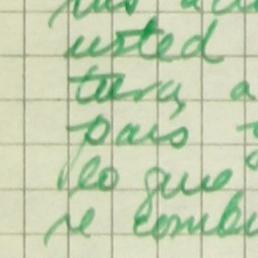 usted
tura, a
país y
lo que
se combi